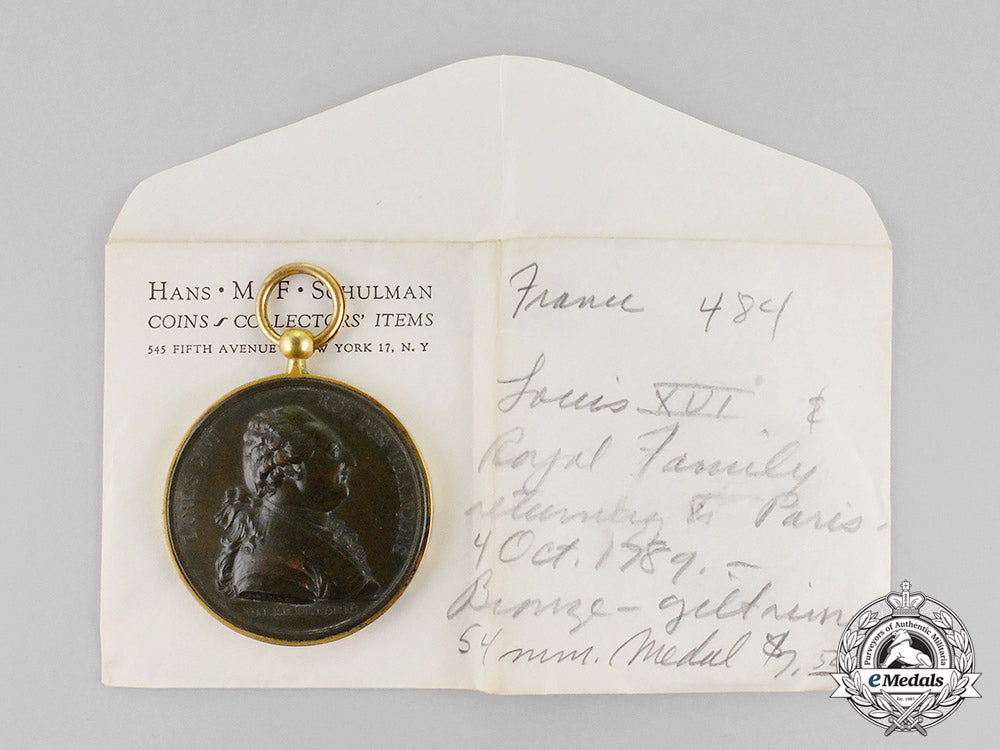 HANS • M • F • SCHULMAN
COINS COLLECTORS' ITEMS
545 FIFTH AVENUE W YORK 17, N. Y
LOUIS XVI ROI DES FRANÇAIS
France 484
Louis XVI &
Royal Family
returning to Paris -
4 Oct. 1789. -
Bronze - gilt rim
54 mm. Medal $7,50
Purveyors of Authentic Militaria
eMedals